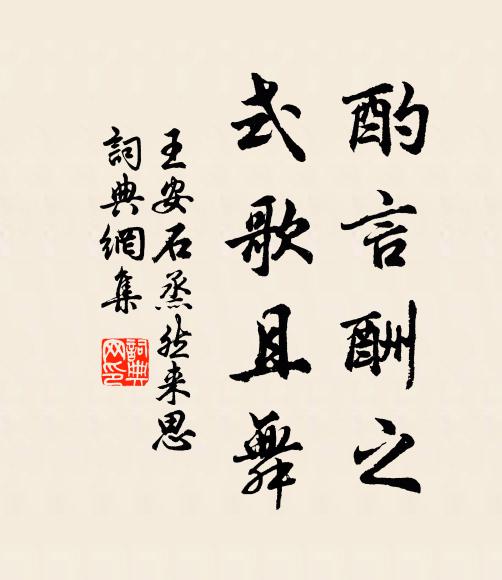 酌言酬之
式歌且舞
王安石烝然来思
詞典網集
詞典
网印